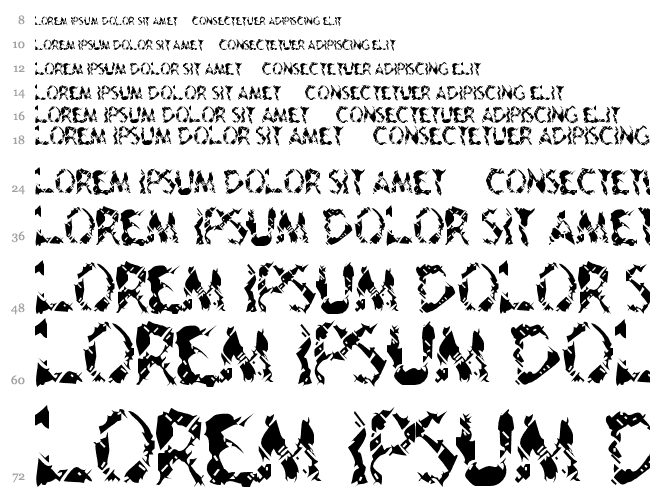 8 LOREM IPSUM DOLOR SIT AMET CONSECTETUER ADIPISCING ELIT
10 LOREM IPSUM DOLOR SIT AMET CONSECTETUER ADIPISCING ELIT
12 LOREM IPSUM DOLOR SIT AMET CONSECTETUER ADIPISCING ELIT
14 LOREM IPSUM DOLOR SIT AMET CONSECTETUER ADIPISCING ELIT
16 LOREM IPSUM DOLOR SIT AMET CONSECTETUER ADIPISCING ELIT
18 LOREM IPSUM DOLOR SIT AMET CONSECTETUER ADIPISCING
24 LOREM IPSUM DOLOR SIT AMET CONSECTETU
36 LOREM IPSUM DOLOR SIT AMET
48 LOREM IPSUM DOLOR S
60 LOREM IPSUM DOL
72 LOREM IPSUM D